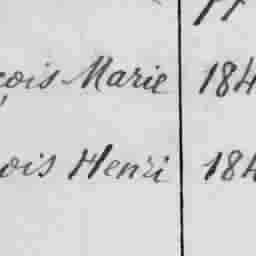 çois Marie 184
ois Henri 184